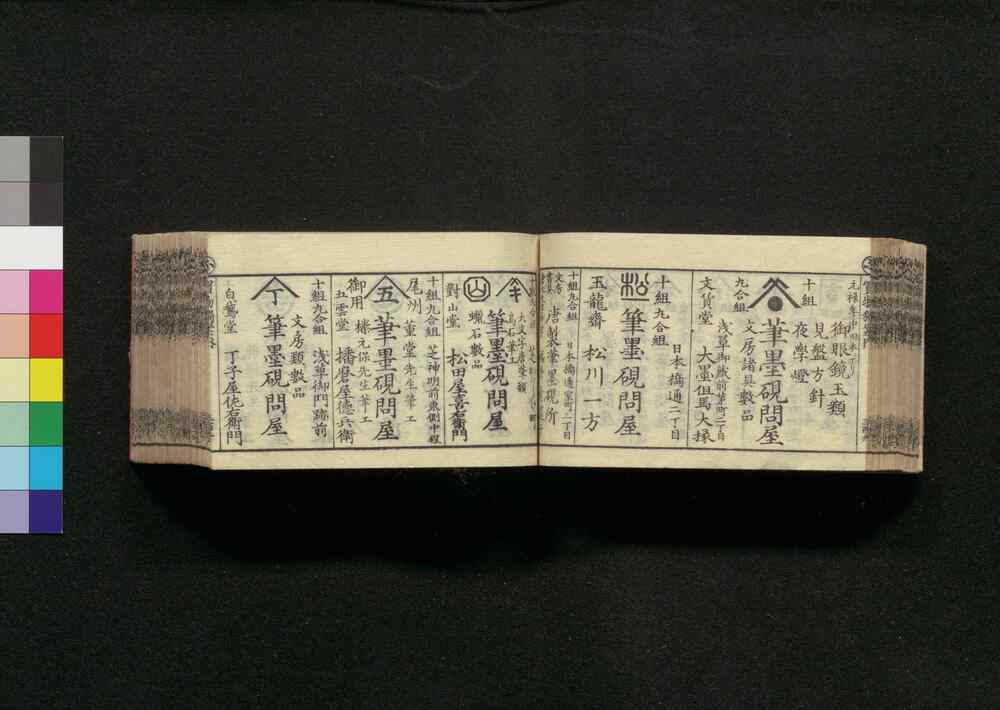 御眼鏡玉類
見盤方針
夜學燈
十組
九合組
筆墨硯問屋
文房諸具數品
文貨堂
大墨但馬大掾
日本橋通二丁目
十組九合組
松
筆墨硯問屋
玉龍齋
松川一方
十組九合組
日本橋通室町二丁目
唐製本筆墨硯所
キ
筆墨硯問屋
山
蠟石數品
對山堂
松田屋喜右衛門
十組九合組
芝神明前東側中程
尾州
董堂先生筆工
五
筆墨硯問屋
御用
樣元保先生筆工
五雲堂
播磨屋德兵衛
十組九合組
浅草御門跡前
丁
筆墨硯問屋
文房類數品
白鵞堂
丁子屋佐右衛門